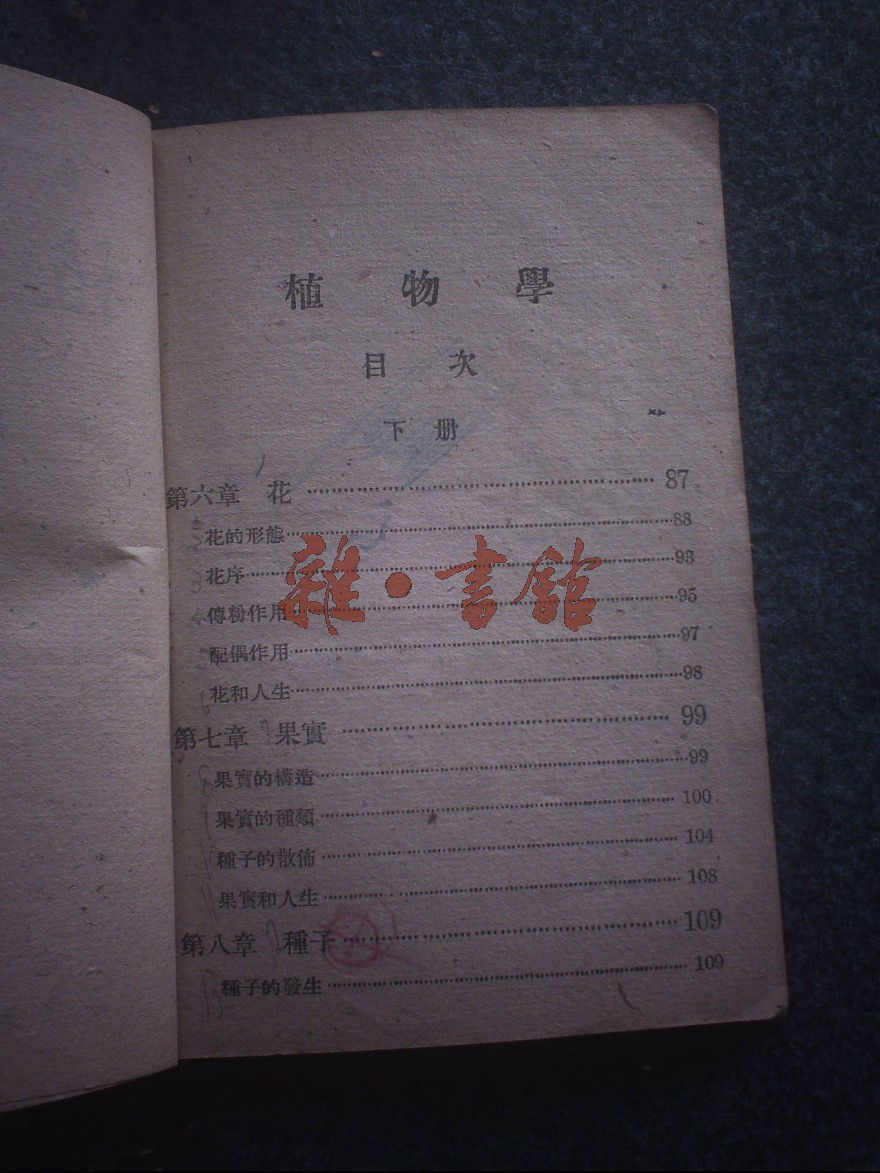 植物學
目次
下册
第六章 花 87
花的形態 88
花序 93
傳粉作用 95
配偶作用 97
花和人生 98
第七章 果實 99
果實的構造 99
果實的種類 100
種子的散佈 104
果實和人生 108
第八章 種子 109
種子的發生 109
雜·書館